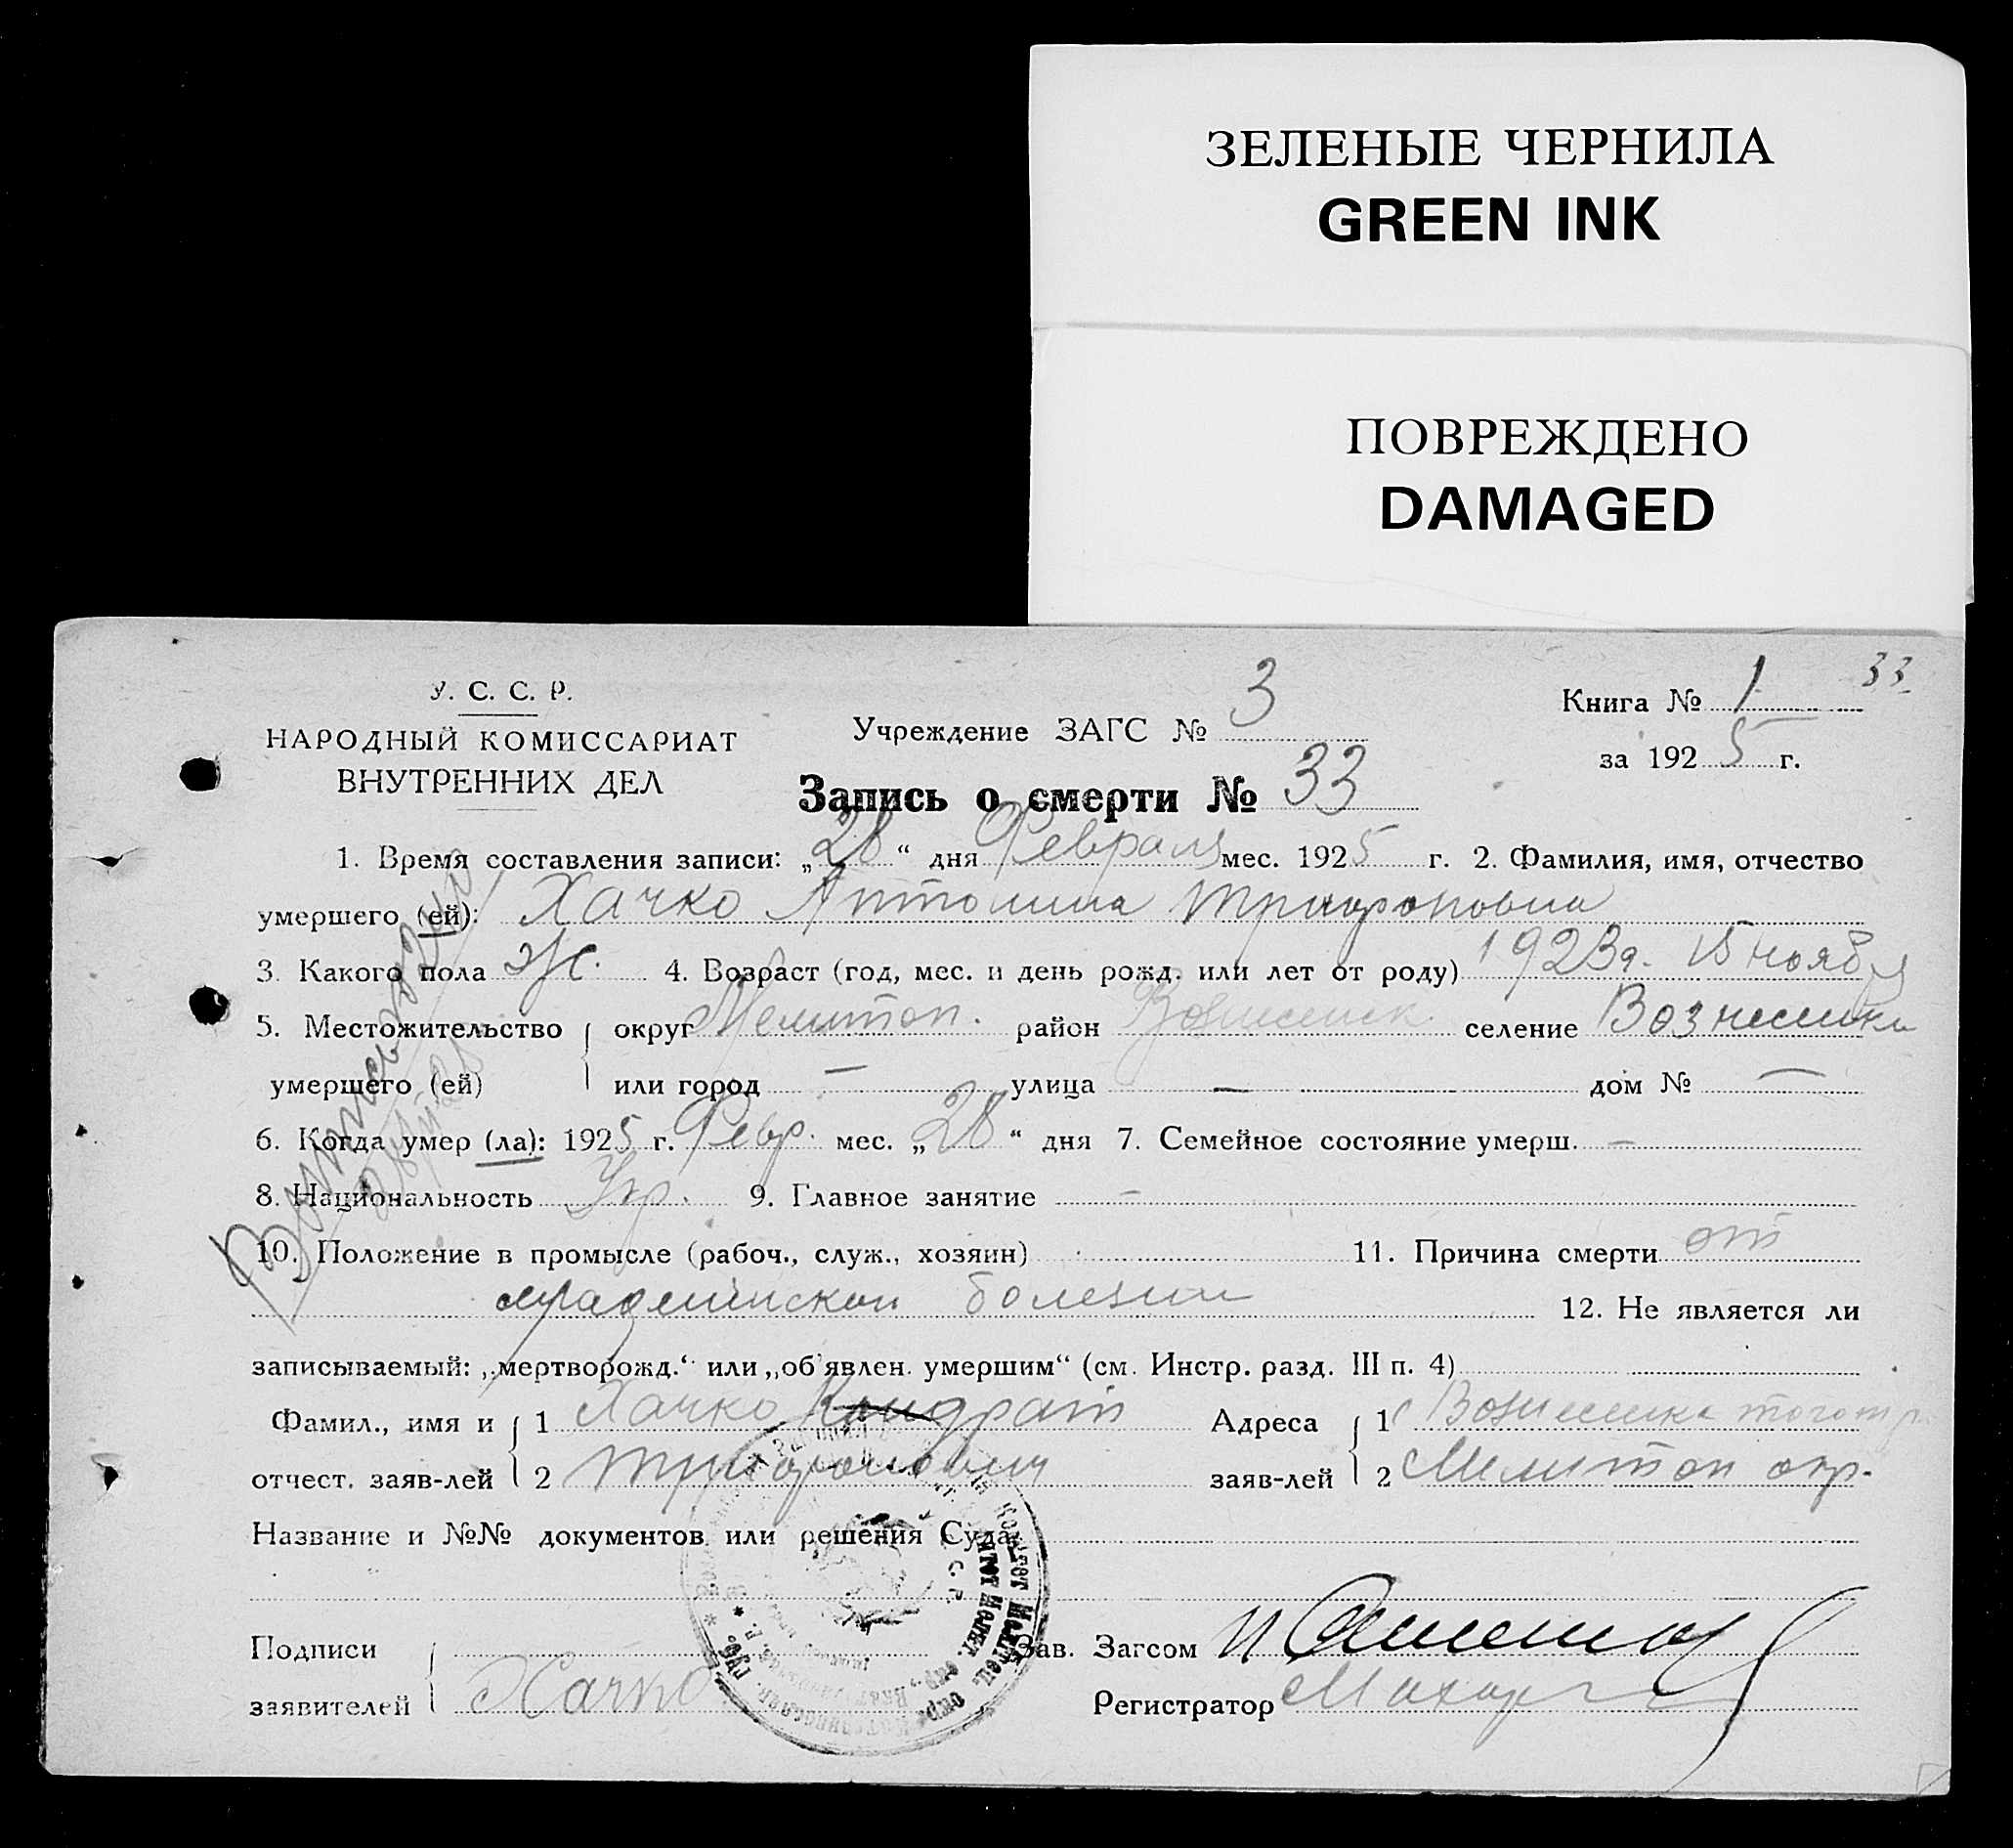 ЗЕЛЕНЫЕ ЧЕРНИЛА
GREEN INK
ПОВРЕЖДЕНО
DAMAGED
33
У. С. С. Р.
НАРОДНЫЙ КОМИССАРИАТ
ВНУТРЕННИХ ДЕЛ
Учреждение ЗАГС № 3
Книга № 1
за 1925 г.
Запись о смерти № 33
1. Время составления записи: „28“ дня Февраля мес. 1925 г. 2. Фамилия, имя, отчество
умершего (ей): Хачко Антонина Трифоновна
3. Какого пола Ж. 4. Возраст (год, мес. и день рожд. или лет от роду) 1923г. 15 ноября
5. Местожительство округ Мелитоп. район Вознесенск селение Вознесенка
умершего (ей) или город — улица — дом № —
6. Когда умер (ла): 1925 г. Февр. мес. „28“ дня 7. Семейное состояние умерш. —
8. Национальность Укр. 9. Главное занятие —
10. Положение в промысле (рабоч., служ., хозяин) 11. Причина смерти от
болезни 12. Не является ли
записываемый: „мертворожд.“ или „об'явлен. умершим“ (см. Инстр. разд. III п. 4)
Фамил., имя и 1 Хачко Кондрат Адреса 1 Вознесенка
отчест. заяв-лей 2 Трифонович заяв-лей 2 Мелитоп окр.
Название и №№ документов или решения Суда
Подписи
заявителей Хачко
Зав. Загсом
Регистратор